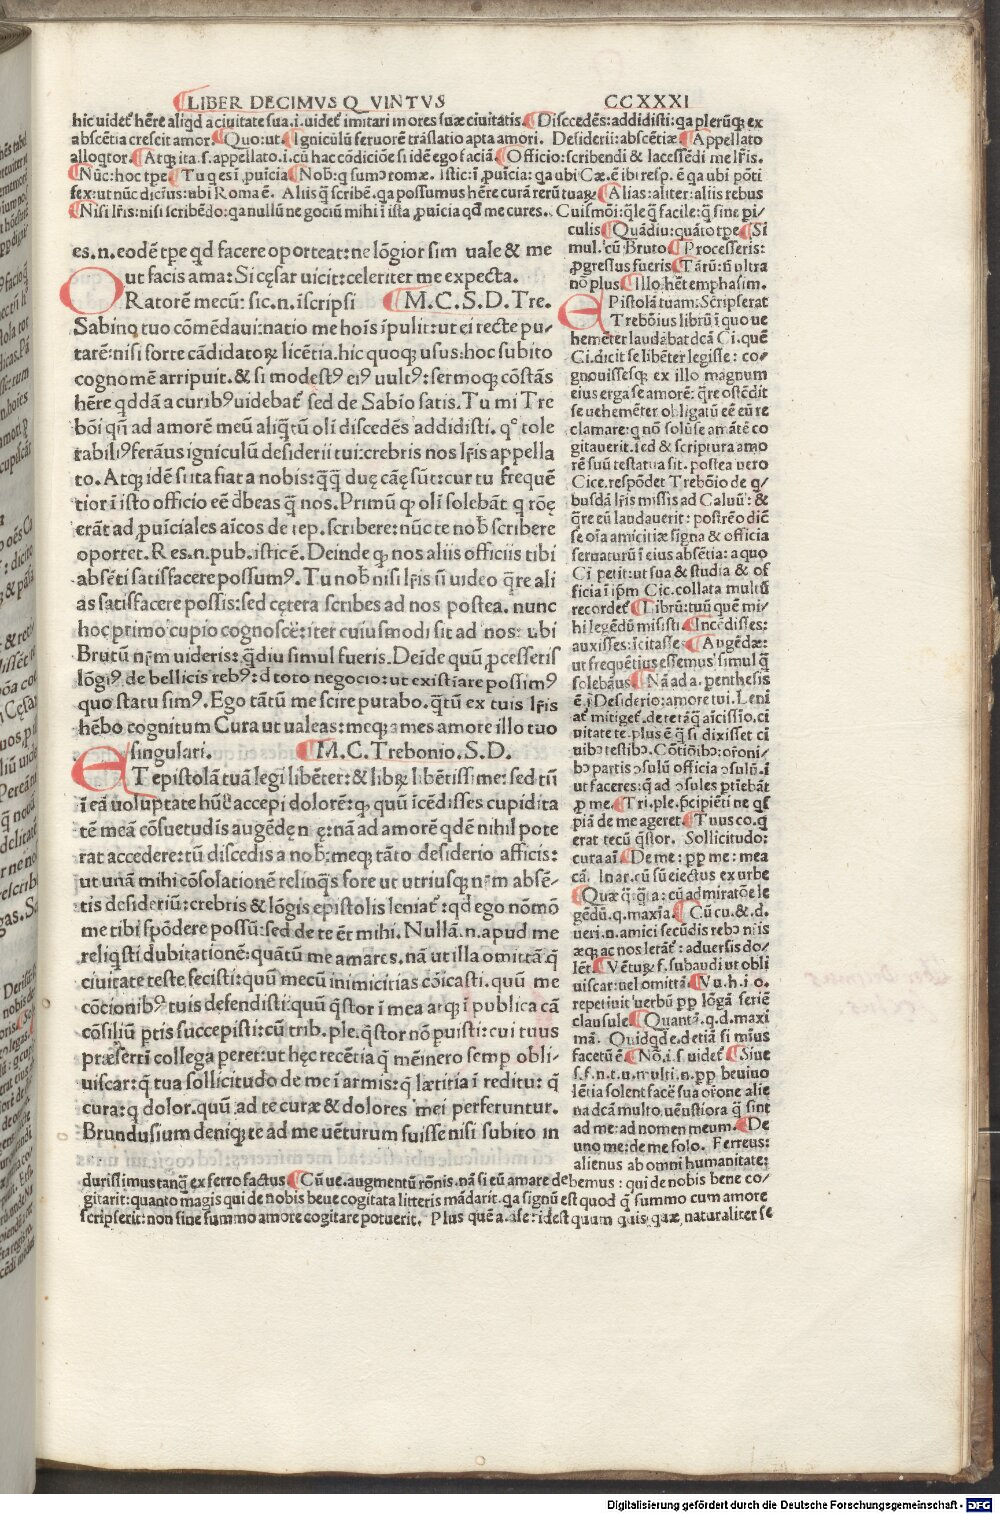 LIBER DECIMVS Q VINTVS CCXXXI
hic uidet hēre aliqd a ciuitate sua.i.uidet imitari mores suæ ciuitatis. Disccedēs:addidisti:qa plerūq; ex
abscētia crescit amor. Quo:ut. Igniculū feruorē trāslatio apta amori. Desiderii:abscētiæ Appellato
alloqtor. Atq; ita.s.appellato.i.cū hac cōdiciōe si idē ego faciā. Officio:scribendi & lacessēdi me lr̄is.
Nūc:hoc tpe. Tu q es ī ꝓuīcia Nob:q sumꝰ romæ. Istic:ī ꝓuīcia:qa ubi Cæ.ē ibi resp. ē qa ubi pōti
fex:ut nūc dicīus:ubi Roma ē. Aliis q̄ scribē.qa possumus hēre curā rerū tuaꝝ Alias:aliter:aliis rebus
Nisi lr̄is:nisi scribēdo:qa nullū negociū mihi ī ista ꝓuīcia qd me cures. Cuismōi:q̄le q̄ facile:q̄ sine pi/
es.n.eodē tpe qd facere oporteat:ne lōgior sim uale & me
ut facis ama:Si cęsar uicit:celeriter me expecta.
ORatorē mecū: sic.n.īscripsi M.C.S.D.Tre.
Sabino tuo cōmēdaui:natio me hoīs īpulit:ut ei recte pu/
tarē:nisi forte cādidatoꝝ licētia.hic quoq; usus:hoc subito
cognomē arripuit.& si modestꝰ eiꝰ uultꝰ:sermoq; cōstās
hēre qddā a curibꝰ uidebat sed de Sabīo satis.Tu mi Tre
bōi qn̄ ad amorē meū aliq̄tū oli discedēs addidisti. qꝰ tole
rabiliꝰ ferāus igniculū desiderii tui:crebris nos lr̄is appella
to. Atq; idē si ita fiat a nobis:q̄q̄ duę cāę sūt:cur tu frequē
tior ī isto officio eē dēbeas q̄ nos. Primū qꝫ oli solebāt q rōę
erāt ad ꝓuīciales aīcos de rep. scribere:nūc te nob scribere
oportet.Res.n.pub.istic ē. Deinde qꝫ nos aliis officiis tibi
absēti satisfacere possumꝰ.Tu nob nisi lr̄is nō uideo q̄re ali
as satisfacere possis:sed cętera scribes ad nos postea. nunc
hoc primo cupio cognoscē:iter cuiusmodi sit ad nos: ubi
Brutū nr̄m uideris: q̄diu simul fueris. Deīde quū ꝓcesseris
lōgiꝰ. de bellicis rebꝰ: d toto negocio:ut existīare possimꝰ
quo statu simꝰ. Ego tātū me scire putabo. q̄tū ex tuis lr̄is
hēbo cognitum Cura ut ualeas:meq; ames amore illo tuo
singulari. M.C.Trebonio.S.D.
ET epistolā tuā legi libēter:& libꝝ libētissime: sed tn̄
ī eā uoluptate hūc accepi dolorē: qꝫ quū īcēdisses cupidita
tē meā cōsuetudis augēdę nr̄ę:nā ad amorē qdē nihil pote
rat accedere:tū discedis a nob:meq; tāto desiderio afficis:
ut unā mihi cōsolationē relinq̄s fore ut utriusq; nr̄m absē/
tis desideriū:crebris & lōgis epistolis leniat:qd ego nōmō
me tibi spōdere possū:sed de te ēt mihi. Nullā.n.apud me
reliq̄sti dubitationē:quātū me amares.nā ut illa omittā q̄
ciuitate teste fecisti:quū mecū inimicitias cōicasti.quū me
cōtionibꝰ tuis defendisti:quū q̄stor ī mea atq; ī publica cā
cōsiliū ꝑtis succepisti:cū trib.ple.q̄stor nō ꝑuisti:cui tuus
præsertī collega peret:ut hęc recētia q̄ mēinero semꝑ obli/
uiscar:q̄ tua sollicitudo de me ī armis:q̄ lætitia ī reditu: q̄
cura:q dolor.quū ad te curæ & dolores mei perferuntur.
Brundusium deniq; te ad me uēturum fuisse nisi subito in
culis Quādiu:quāto tpe Si
mul.cū Bruto Processeris:
ꝓgressus fueris Tātū:n̄ ultra
nō plus Illo:hēt emphasim.
EPistolā tuam:Scripserat
Trebōius librū ī quo ue
hemēter laudabat dcā Ci.quē
Ci.dicit se libēter legisse: co/
gnouisseq; ex illo magnum
eius erga se amorē: q̄re ostēdit
se uehemēter obligatū eē eū re
clamare:q nō solū se amātē co
gitauerit.ſed & scriptura amo
rē suū testatua sit. postea uero
Cice.respōdet Trebōio de q/
busdā lr̄is missis ad Caluū: &
q̄re eū laudauerit: postrēo dic̄
se oīa amicitiæ signa & officia
seruaturū ī eius absētia: a quo
Ci petit:ut sua & studia & of
ficia ī ip̄m Cic.collata multū
recordet Librū:tuū quē mi/
hi legēdū misisti Incēdisses:
auxisses:icitasse Augēdæ:
ut frequētius essemus simul q̄
solebāus. Nā ad a.perithesis
ē. Desiderio:amore tui. Leni
at mitiget.de te:āq̄ aīcissio.ci
uitate te.plus ē q̄ si dixisset ci
uibꝰ testibꝰ. Cōtiōibꝰ:oroni/
bꝰ partis ꝯsulū officia ꝯsulū.i
ut faceres:q̄ ad ꝯsules ptiebāt
ꝑ me. Tri.ple.p̄cipiēti ne qs
piā de me ageret Tuus co.q
erat tecū q̄stor. Sollicitudo:
cura aī De me: ꝑꝑ me: mea
cā. In ar.cū sū eiectus ex urbe
Quæ q̄:q̄a: cū admiratōe le
gēdū.q.maxīa Cū cu.& d.
ueri.n.amici secūdis rebꝰ n̄is
æq; ac nos letāt: aduersis do/
lēt Vētuꝝ f.subaudi ut obli
uiscar:uel omittā Vu.h.i.o.
repetiuit uerbū ꝑꝑ lōgā seriē
clausule Quantā.q.d.maxi
mā. Quidqd e.d:etiā si mīus
facetū ē Nō.i.s uidet Siue
s.f.n.t.u.multi.n.ꝑꝑ beuiuo
lētia solent facē sua orone alie
na dcā multo ueustiora q̄ sint
ad me:ad nomen meum. De
uno me:de me solo. Ferreus:
alienus ab omni humanitate:
durissimus tanq̄ ex ferro factus Cū ue.augmentū rōnis.nā si eū amare debemus : qui de nobis bene co/
gitarit:quanto magis qui de nobis beue cogitata litteris mādarit.qa signū est quod q̄ summo cum amore
scripserit:non sine summo amore cogitare potuerit. Plus quē a.ase:idest quum quis quæ naturaliter se
Digitalisierung gefördert durch die Deutsche Forschungsgemeinschaft - DFG